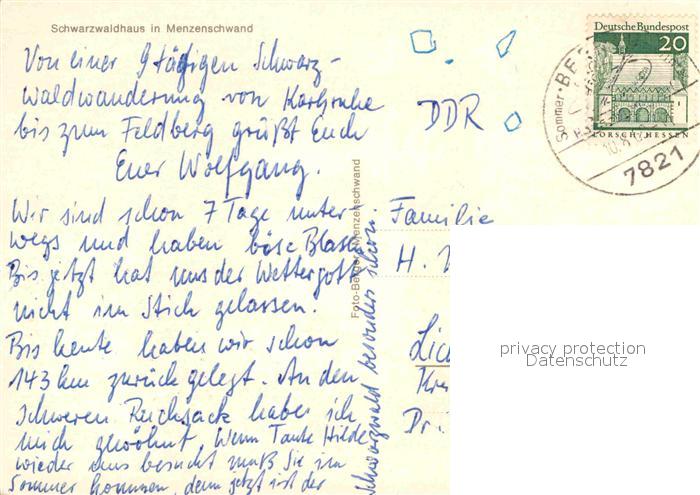 Schwarzwaldhaus in Menzenschwand
Von einer 9tägigen Schwarz-
waldwanderung von Karlsruhe
bis zum Feldberg grüßt Euch
Euer Wolfgang.
Wir sind schon 7 Tage unter-
wegs und haben böse Blasen
Bis jetzt hat uns der Wettergott
nicht im Stich gelassen.
Bis heute haben wir schon
143 km zurück gelegt. An den
schweren Rucksack habe ich
mich gewöhnt. Wenn Tante Hilde
wieder uns besucht muß Sie im
Sommer kommen, denn jetzt ist der
Schwarzwald besonders schön.
Foto-Berger, Menzenschwand
DDR
Familie
H.
Lic
Kre
Dr.
Deutsche Bundespost
20
LORSCH/HESSEN
Sommer
7821
privacy protection
Datenschutz